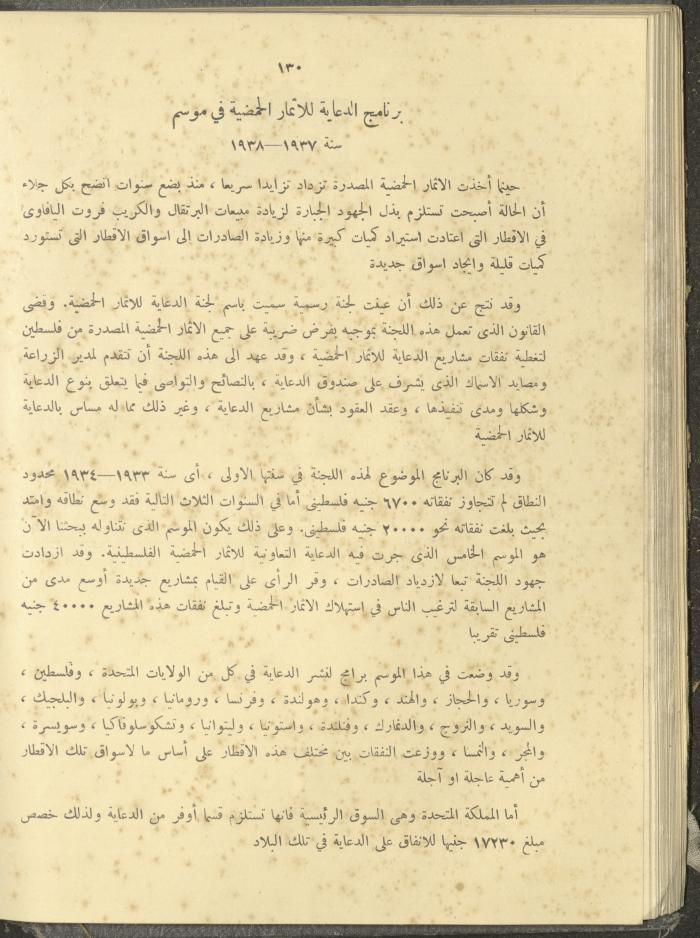 ١٣٠
برنامج الدعاية للاثمار الحمضية في موسم
سنة ١٩٣٧—١٩٣٨
حينما أخذت الاثمار الحمضية المصدرة تزداد تزايدا سريعا ، منذ بضع سنوات اتضح بكل جلاء
أن الحالة أصبحت تستلزم بذل الجهود الجبارة لزيادة مبيعات البرتقال والكريب فروت اليافاوى
في الاقطار التى اعتادت استيراد كميات كبيرة منها وزيادة الصادرات الى اسواق الاقطار التى تستورد
كميات قليلة وايجاد اسواق جديدة
وقد نتج عن ذلك أن عينت لجنة رسمية سميت باسم لجنة الدعاية للاثمار الحمضية. وقضى
القانون الذى تعمل هذه اللجنة بموجبه بفرض ضريبة على جميع الاثمار الحمضية المصدرة من فلسطين
لتغطية نفقات مشاريع الدعاية للاثمار الحمضية ، وقد عهد الى هذه اللجنة أن تتقدم لمدير الزراعة
ومصايد الاسماك الذى يشرف على صندوق الدعاية ، بالنصائح والتواصى فيما يتعلق بنوع الدعاية
وشكلها ومدى تنفيذها ، وعقد العقود بشأن مشاريع الدعاية ، وغير ذلك مما له مساس بالدعاية
للاثمار الحمضية
وقد كان البرنامج الموضوع لهذه اللجنة في سنتها الاولى ، أى سنة ١٩٣٣—١٩٣٤ محدود
النطاق لم تتجاوز نفقاته ٦٧٠٠ جنيه فلسطينى أما في السنوات الثلاث التالية فقد وسع نطاقه وامتد
بحيث بلغت نفقاته نحو ٢٠٠٠٠ جنيه فلسطينى. وعلى ذلك يكون الموسم الذى نتناوله ببحثنا الآن
هو الموسم الخامس الذى جرت فيه الدعاية التعاونية للاثمار الحمضية الفلسطينية. وقد ازدادت
جهود اللجنة تبعا لازدياد الصادرات ، وقر الرأى على القيام بمشاريع جديدة أوسع مدى من
المشاريع السابقة لترغيب الناس في استهلاك الاثمار الحمضية وتبلغ نفقات هذه المشاريع ٤٠٠٠٠ جنيه
فلسطينى تقريبا
وقد وضعت في هذا الموسم برامج لنشر الدعاية في كل من الولايات المتحدة ، وفلسطين ،
وسوريا ، والحجاز ، والهند ، وكندا ، وهولندة ، وفرنسا ، ورومانيا ، وبولونيا ، والبلجيك ،
والسويد ، والنروج ، والدنمارك ، وفنلندة ، واستونيا ، وليتوانيا ، وتشكوسلوفاكيا ، وسويسرة ،
والمجر ، والنمسا ، ووزعت النفقات بين مختلف هذه الاقطار على أساس ما لاسواق تلك الاقطار
من أهمية عاجلة او آجلة
أما المملكة المتحدة وهى السوق الرئيسية فانها تستلزم قسما أوفر من الدعاية ولذلك خصص
مبلغ ١٧٢٣٠ جنيها للانفاق على الدعاية في تلك البلاد